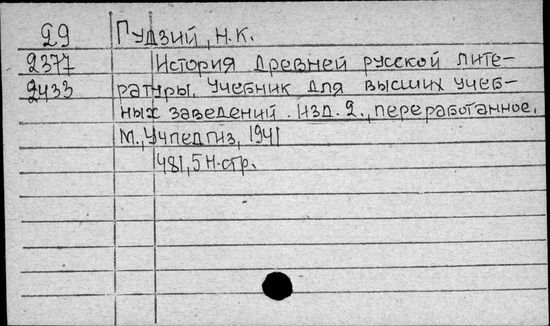 29 Пудзий, Н.К.
2377 История древней русской лите-
2433 ратуры. Учебник для высших учеб-
ных заведений. Изд. 2., переработанное.
М., Учпедгиз, 1941
481,5 Н.стр.